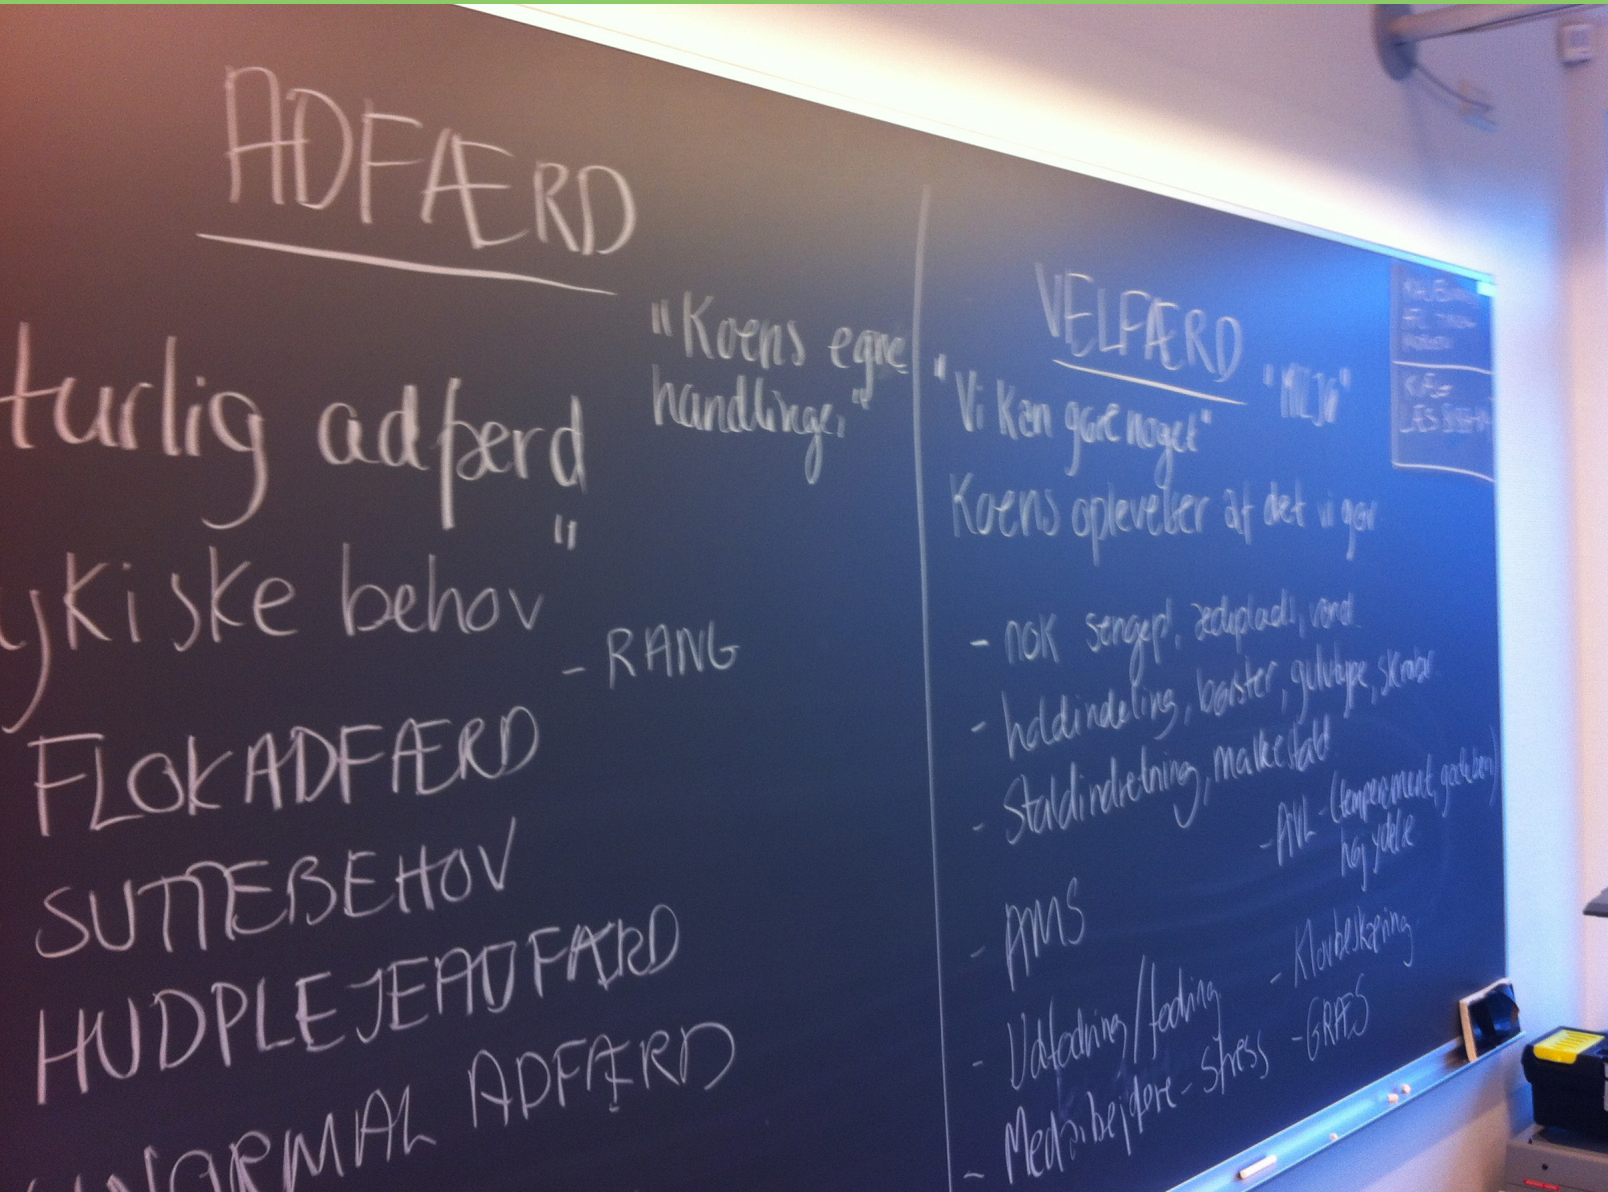 ADFÆRD
turlig adfærd
"Koens egne
handlinger"
ykiske behov"
- RANG
FLOKADFÆRD
SUTTEBEHOV
HUDPLEJEADFÆRD
NORMAL ADFÆRD
VELFÆRD
"Vi kan gøre noget"
Koens oplevelser af det vi gør
- nok sengepl, ædeplads, vand
- holdindeling, børster, gulvtype, skraber
- Staldindretning, malkestald
- AVL - (temperament, gode ben)
høj ydelse
- AMS
- Klovbeskæring
- Udfodring/fodring
- GRÆS
- Medarbejdere - stress